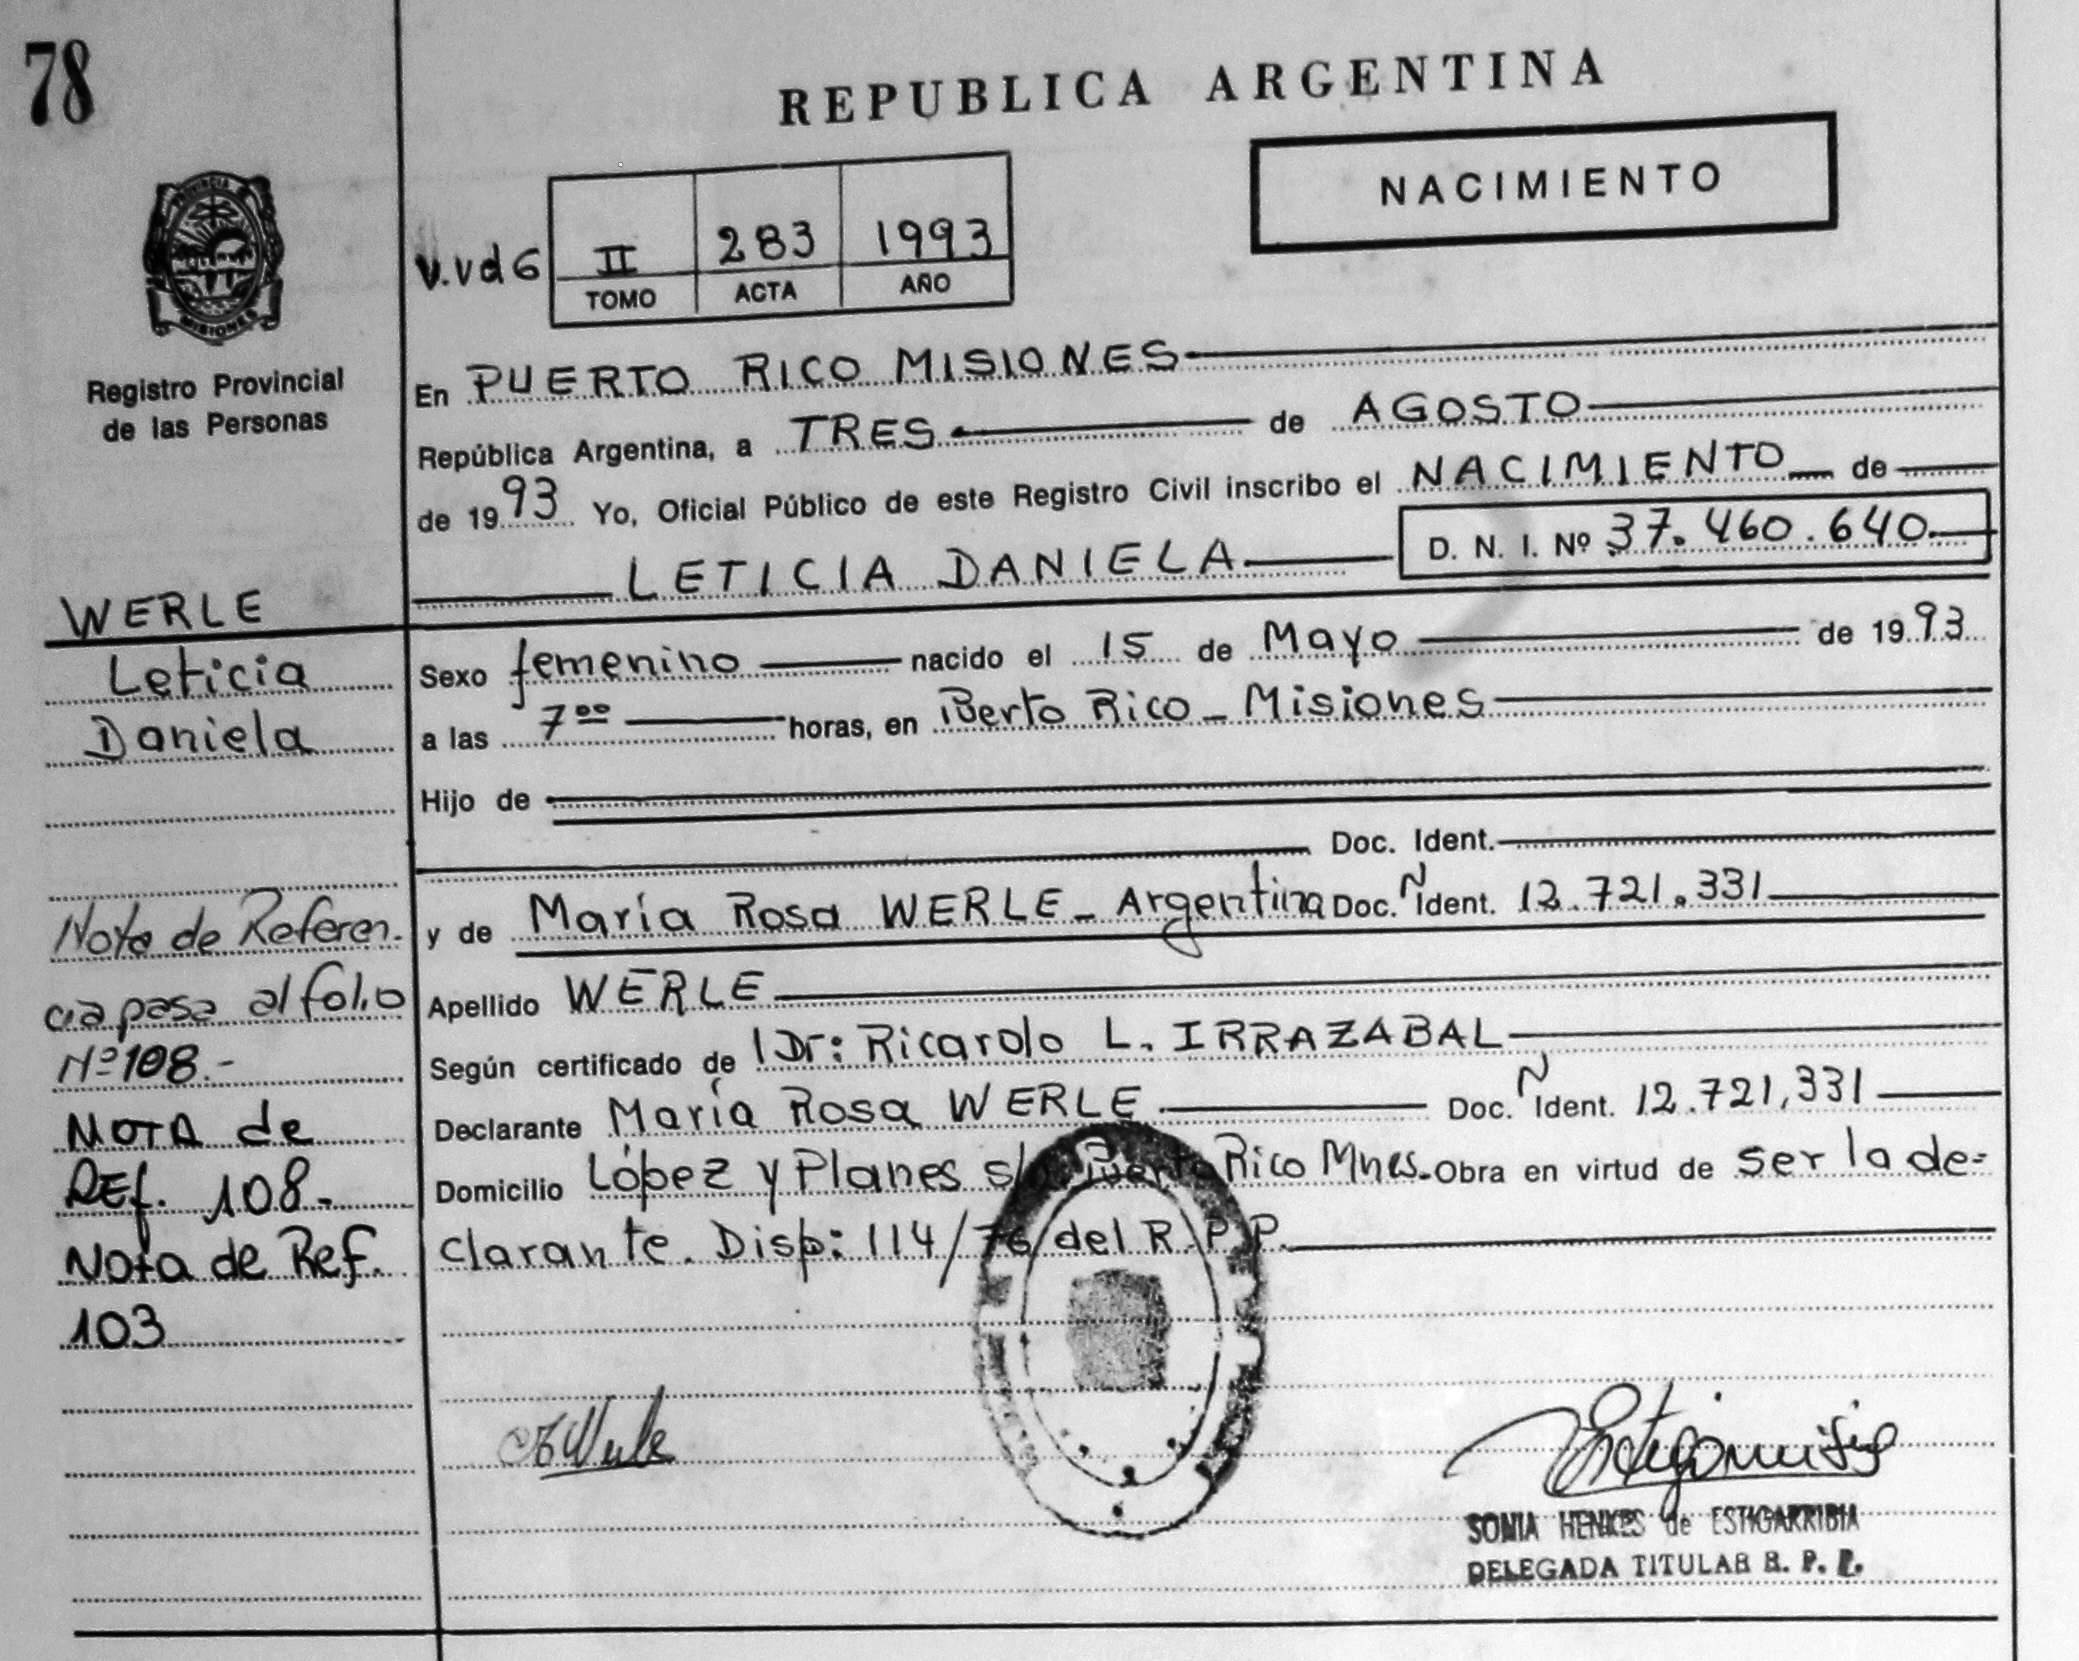 78
REPUBLICA ARGENTINA
NACIMIENTO
PROVINCIA DE
MISIONES
Registro Provincial
de las Personas
V.vd6
II 283 1993
TOMO ACTA AÑO
En PUERTO RICO MISIONES
República Argentina, a TRES de AGOSTO
de 1993 Yo, Oficial Público de este Registro Civil inscribo el NACIMIENTO de
LETICIA DANIELA D. N. I. Nº 37.460.640
WERLE
Leticia
Daniela
Sexo femenino nacido el 15 de Mayo de 1993
a las 7 00 horas, en Puerto Rico - Misiones
Hijo de
Doc. Ident.
y de María Rosa WERLE - Argentina Doc. N Ident. 12.721.331
Apellido WERLE
Según certificado de Dr: Ricardo L. IRRAZABAL
Declarante María Rosa WERLE Doc. N Ident. 12.721,331
Domicilio López y Planes s/n Puerto Rico Mnes. Obra en virtud de ser la de=
clarante. Disp: 114/76 del R.P.P.
Nota de Referen.
cia pasa al folio
Nº 108.-
NOTA de
REf. 108.-
Nota de Ref.
103
SONIA HENKES de ESTIGARRIBIA
DELEGADA TITULAR R. P. P.